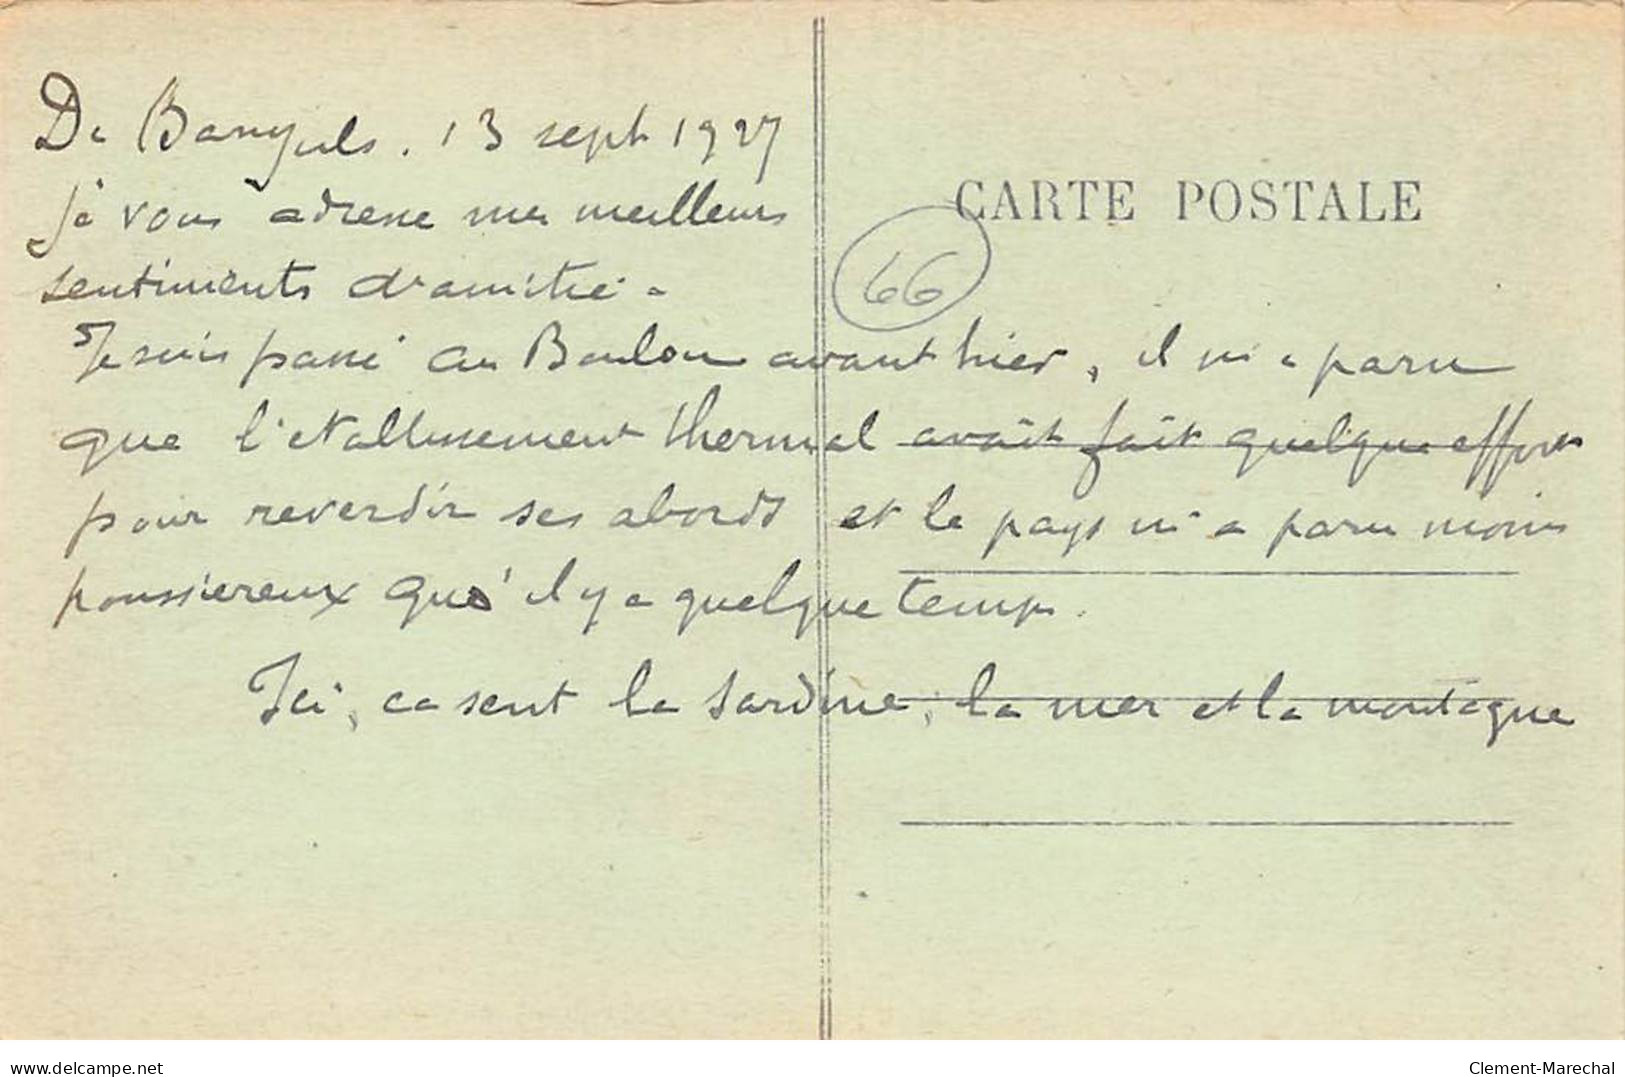 De Banyuls. 13 sept 1927
Je vous adresse mes meilleurs
sentiments d'amitié -
CARTE POSTALE
66
Je suis passé au Boulou avant hier, il m'a paru
que l'etablissement thermal avait fait quelque effort
pour reverdir ses abords et le pays m'a paru moins
poussiereux qu'il y a quelque temps.
Ici, ca sent la sardine, la mer et la montagne
delcampe.net
Clement-Marechal